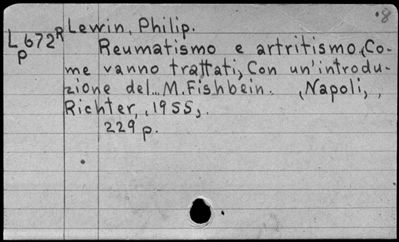 .8
L672R Lewin, Philip.
p Reumatismo e artritismo. Co-
me vanno trattati, Con un'introdu-
zione del... M. Fishbein. , Napoli, ,
Richter, , 1955, .
229 p.